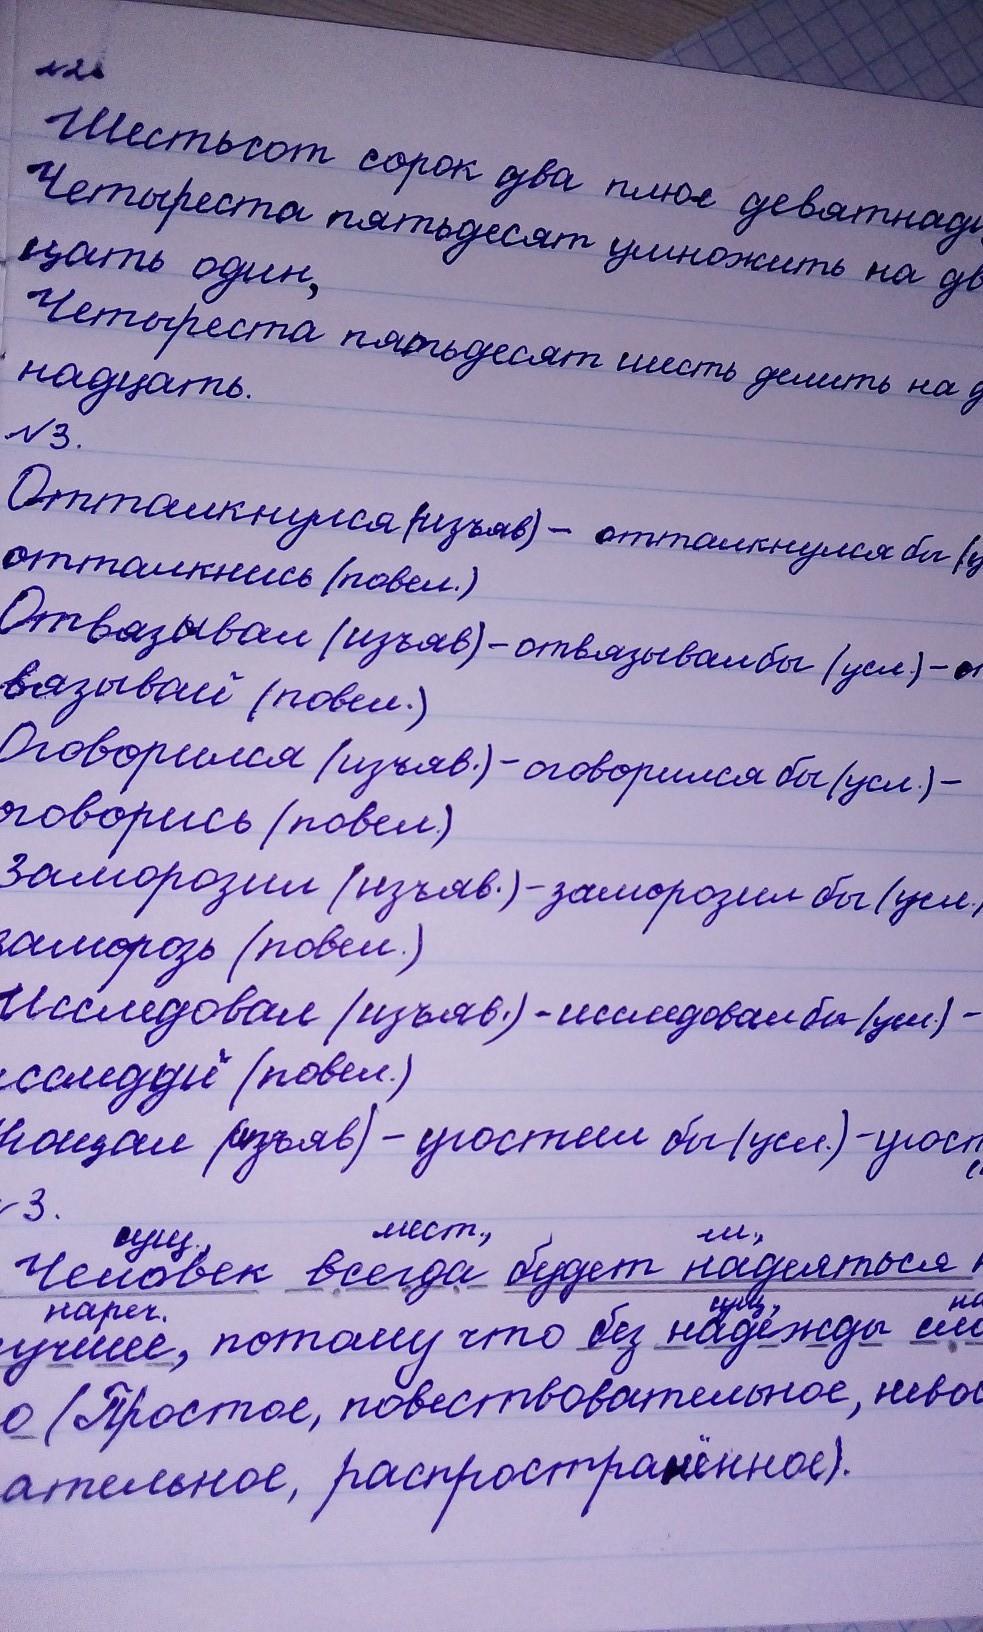 №2.
Шестьсот сорок два плюс девятнадц
Четыреста пятьдесят умножить на дв
цать один,
Четыреста пятьдесят шесть делить на д
надцать.
№3.
Оттолкнулся (изъяв) – оттолкнулся бы (у
оттолкнись (повел.)
Отвязывал (изъяв) – отвязывал бы (усл.) – от
вязывай (повел.)
Оговорился (изъяв.) – оговорился бы (усл.) –
оговорись (повел.)
Заморозил (изъяв.) – заморозил бы (усл.)
заморозь (повел.)
Исследовал (изъяв.) – исследовал бы (усл.) –
исследуй (повел.)
(изъяв) – угостил бы (усл.) – угост
3.
сущ., мест., гл.,
Человек всегда будет надеяться н
нареч. сущ., на
учшее, потому что без надежды сло
о (Простое, повествовательное, невос
ательное, распространённое).